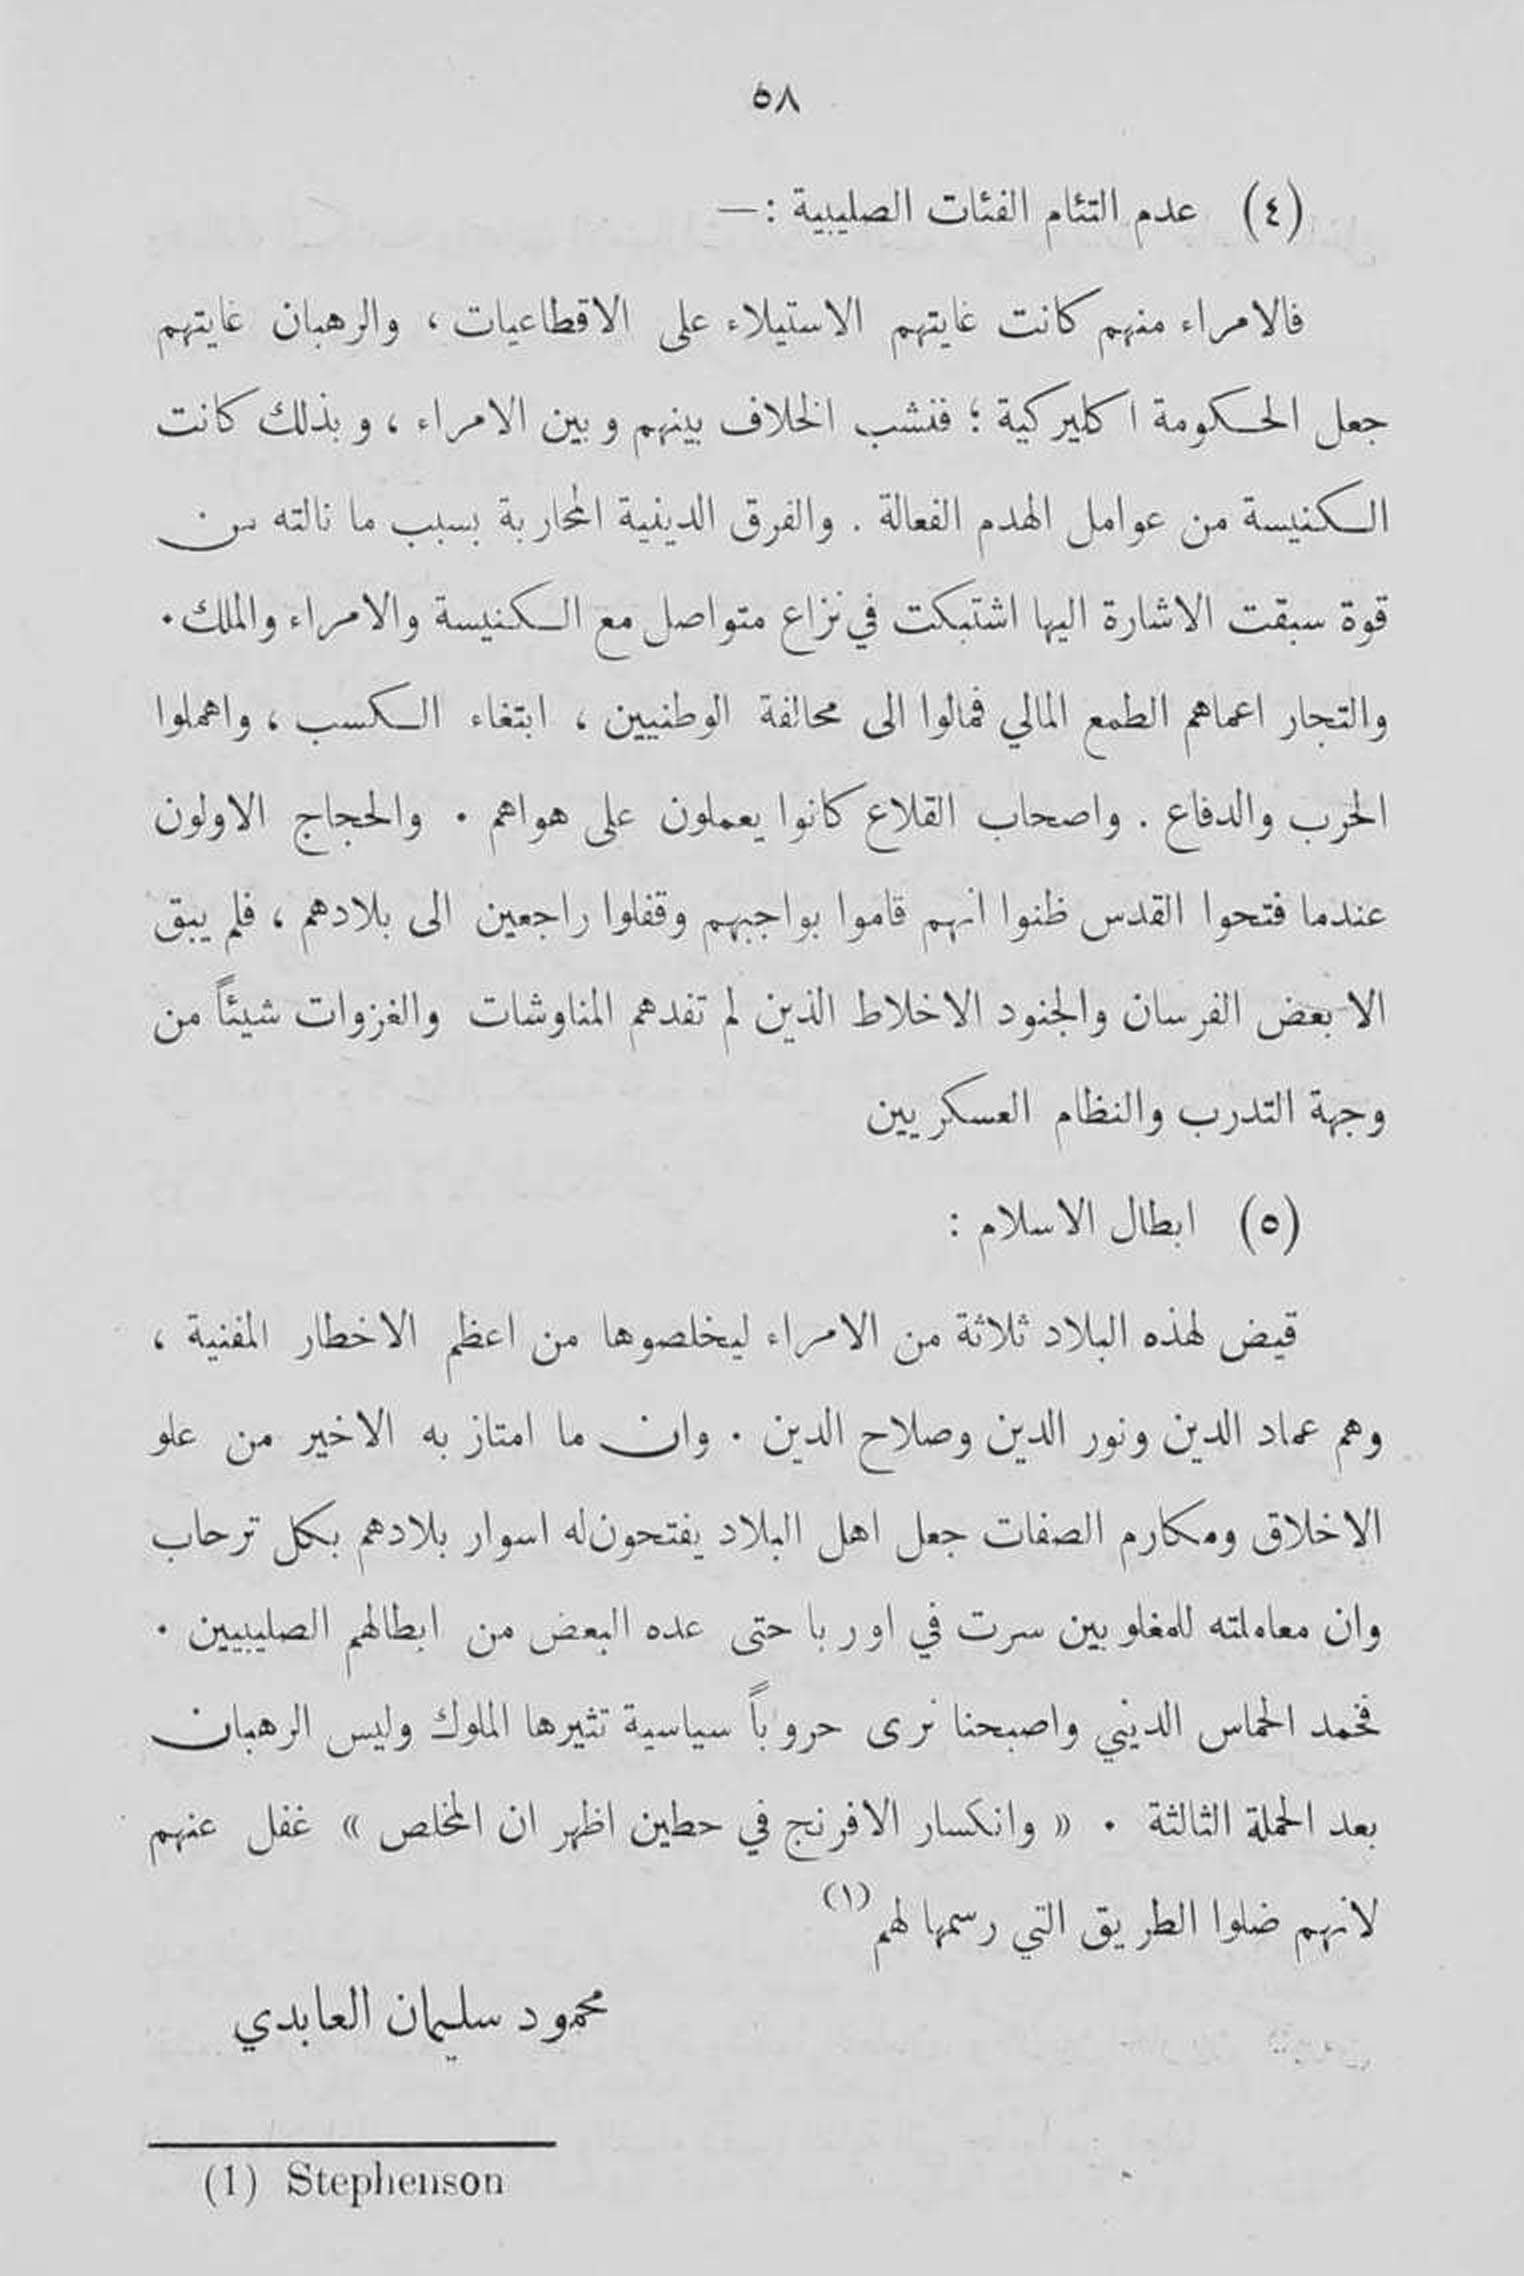 ٥٨
(٤) عدم التئام الفئات الصليبية : —
فالامراء منهم كانت غايتهم الاستيلاء على الاقطاعيات ، والرهبان غايتهم
جعل الحكومة اكليركية ؛ فنشب الخلاف بينهم وبين الامراء ، وبذلك كانت
الكنيسة من عوامل الهدم الفعالة . والفرق الدينية المحاربة بسبب ما نالته من
قوة سبقت الاشارة اليها اشتبكت في نزاع متواصل مع الكنيسة والامراء والملك .
والتجار اعماهم الطمع المالي فمالوا الى محالفة الوطنيين ، ابتغاء الكسب ، واهملوا
الحرب والدفاع . واصحاب القلاع كانوا يعملون على هواهم . والحجاج الاولون
عندما فتحوا القدس ظنوا انهم قاموا بواجبهم وقفلوا راجعين الى بلادهم ، فلم يبق
الا بعض الفرسان والجنود الاخلاط الذين لم تفدهم المناوشات والغزوات شيئاً من
وجهة التدرب والنظام العسكريين
(٥) ابطال الاسلام :
قيض لهذه البلاد ثلاثة من الامراء ليخلصوها من اعظم الاخطار المفنية ،
وهم عماد الدين ونور الدين وصلاح الدين . وان ما امتاز به الاخير من علو
الاخلاق ومكارم الصفات جعل اهل البلاد يفتحون له اسوار بلادهم بكل ترحاب
وان معاملته للمغلوبين سرت في اوربا حتى عده البعض من ابطالهم الصليبيين .
فخمد الحماس الديني واصبحنا نرى حروباً سياسية تثيرها الملوك وليس الرهبان
بعد الحملة الثالثة . « وانكسار الافرنج في حطين اظهر ان المخلص » غفل عنهم
لانهم ضلوا الطريق التي رسمها لهم (١)
محمود سليمان العابدي
(1) Stephenson